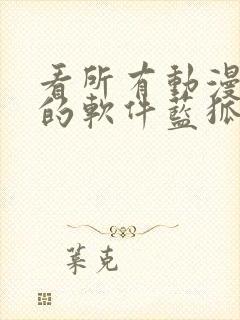 看所有動漫
的軟件藍狐
葉克